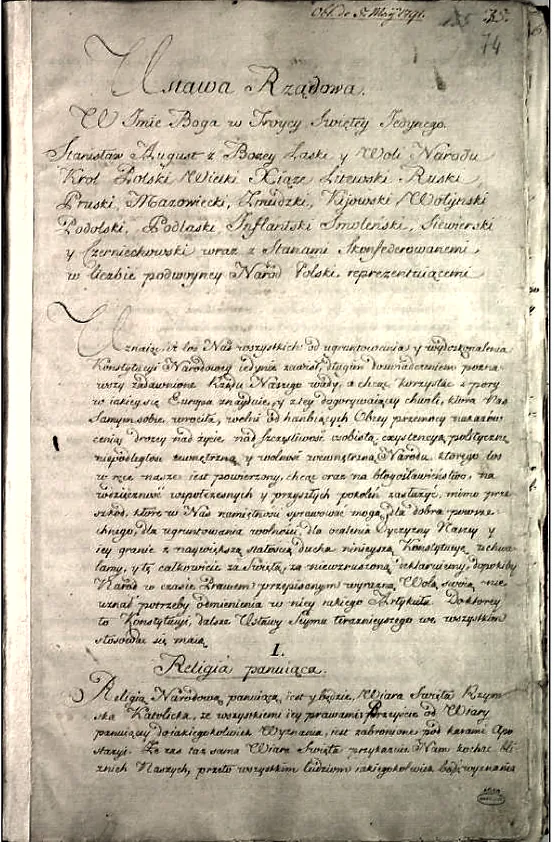 Obl. de 5. Maij 1791.
135
35.
74
Ustawa Rządowa.
W Imie Boga w Troycy Swiętey Jedynego.
Stanisław August z Bozey Łaski y Woli Narodu
Krol Polski Wielki Xiąże Litewski Ruski
Pruski, Mazowiecki, Zmudzki, Kijowski Wołynski
Podolski, Podlaski Inflantski Smolenski, Siewierski
y Czerniechowski wraz z Stanami Skonfederowanemi
w liczbie podwoyney Naród Polski reprezentuiącemi
Uznaiąc, iż los Nas wszystkich od ugruntowania y wydoskonalenia
Konstytucyi Narodowey iedynie zawisł, długim doswiadczeniem pozna-
wszy zadawnione Rządu Naszego wady, a chcąc korzystac z pory
w iakiey się Europa znayduie, y z tey dogorywaiącey chwili, ktora Nas
samym sobie wrociła, wolni od hanbiących Obcey przemocy nakazów
ceniąc drozey nad zycie, nad szczęsliwosc osobistą, exystencyą polityczną
niepodległosc zewnętrzną y wolnosc wewnętrzną Narodu, ktorego los
w ręce nasze iest powierzony, chcąc oraz na błogosławieństwo, na
wdzięcznosc wspołczesnych y przyszłych pokolen zasłuzyc, mimo prze-
szkód, które w Nas namiętnosci sprawowac mogą, dla dobra powsze-
chnego, dla ugruntowania wolnosci, dla ocalenia Oyczyzny Naszey y
iey granic z naywiększą stałoscią ducha ninieyszą Konstytucyę uchwa-
lamy, y tę całkowicie za Swiętą, za niewzruszoną deklaruiemy, dopokiby
Narod w czasie Prawem przepisanym wyrazną Wolą swoią nie
uznał potrzeby odmienienia w niey iakiego Artykułu. Doktorey
to Konstytucyi, dalsze Ustawy Seymu teraznieyszego we wszystkim
stosowac się maią
I.
Religia panuiąca.
Religią Narodową panuiącą iest y będzie Wiara Swięta Rzym-
ska Katolicka, ze wszystkiemi iey prawami. Przeyscie od Wiary
panuiącey do iakiegokolwiek Wyznania, iest zabronione pod karami Apo-
stazyi. Ze zas taz sama Wiara Swięta przykazuie Nam kochac bli-
znich Naszych, przeto wszystkim ludziom iakiegokolwiek bądz wyznania